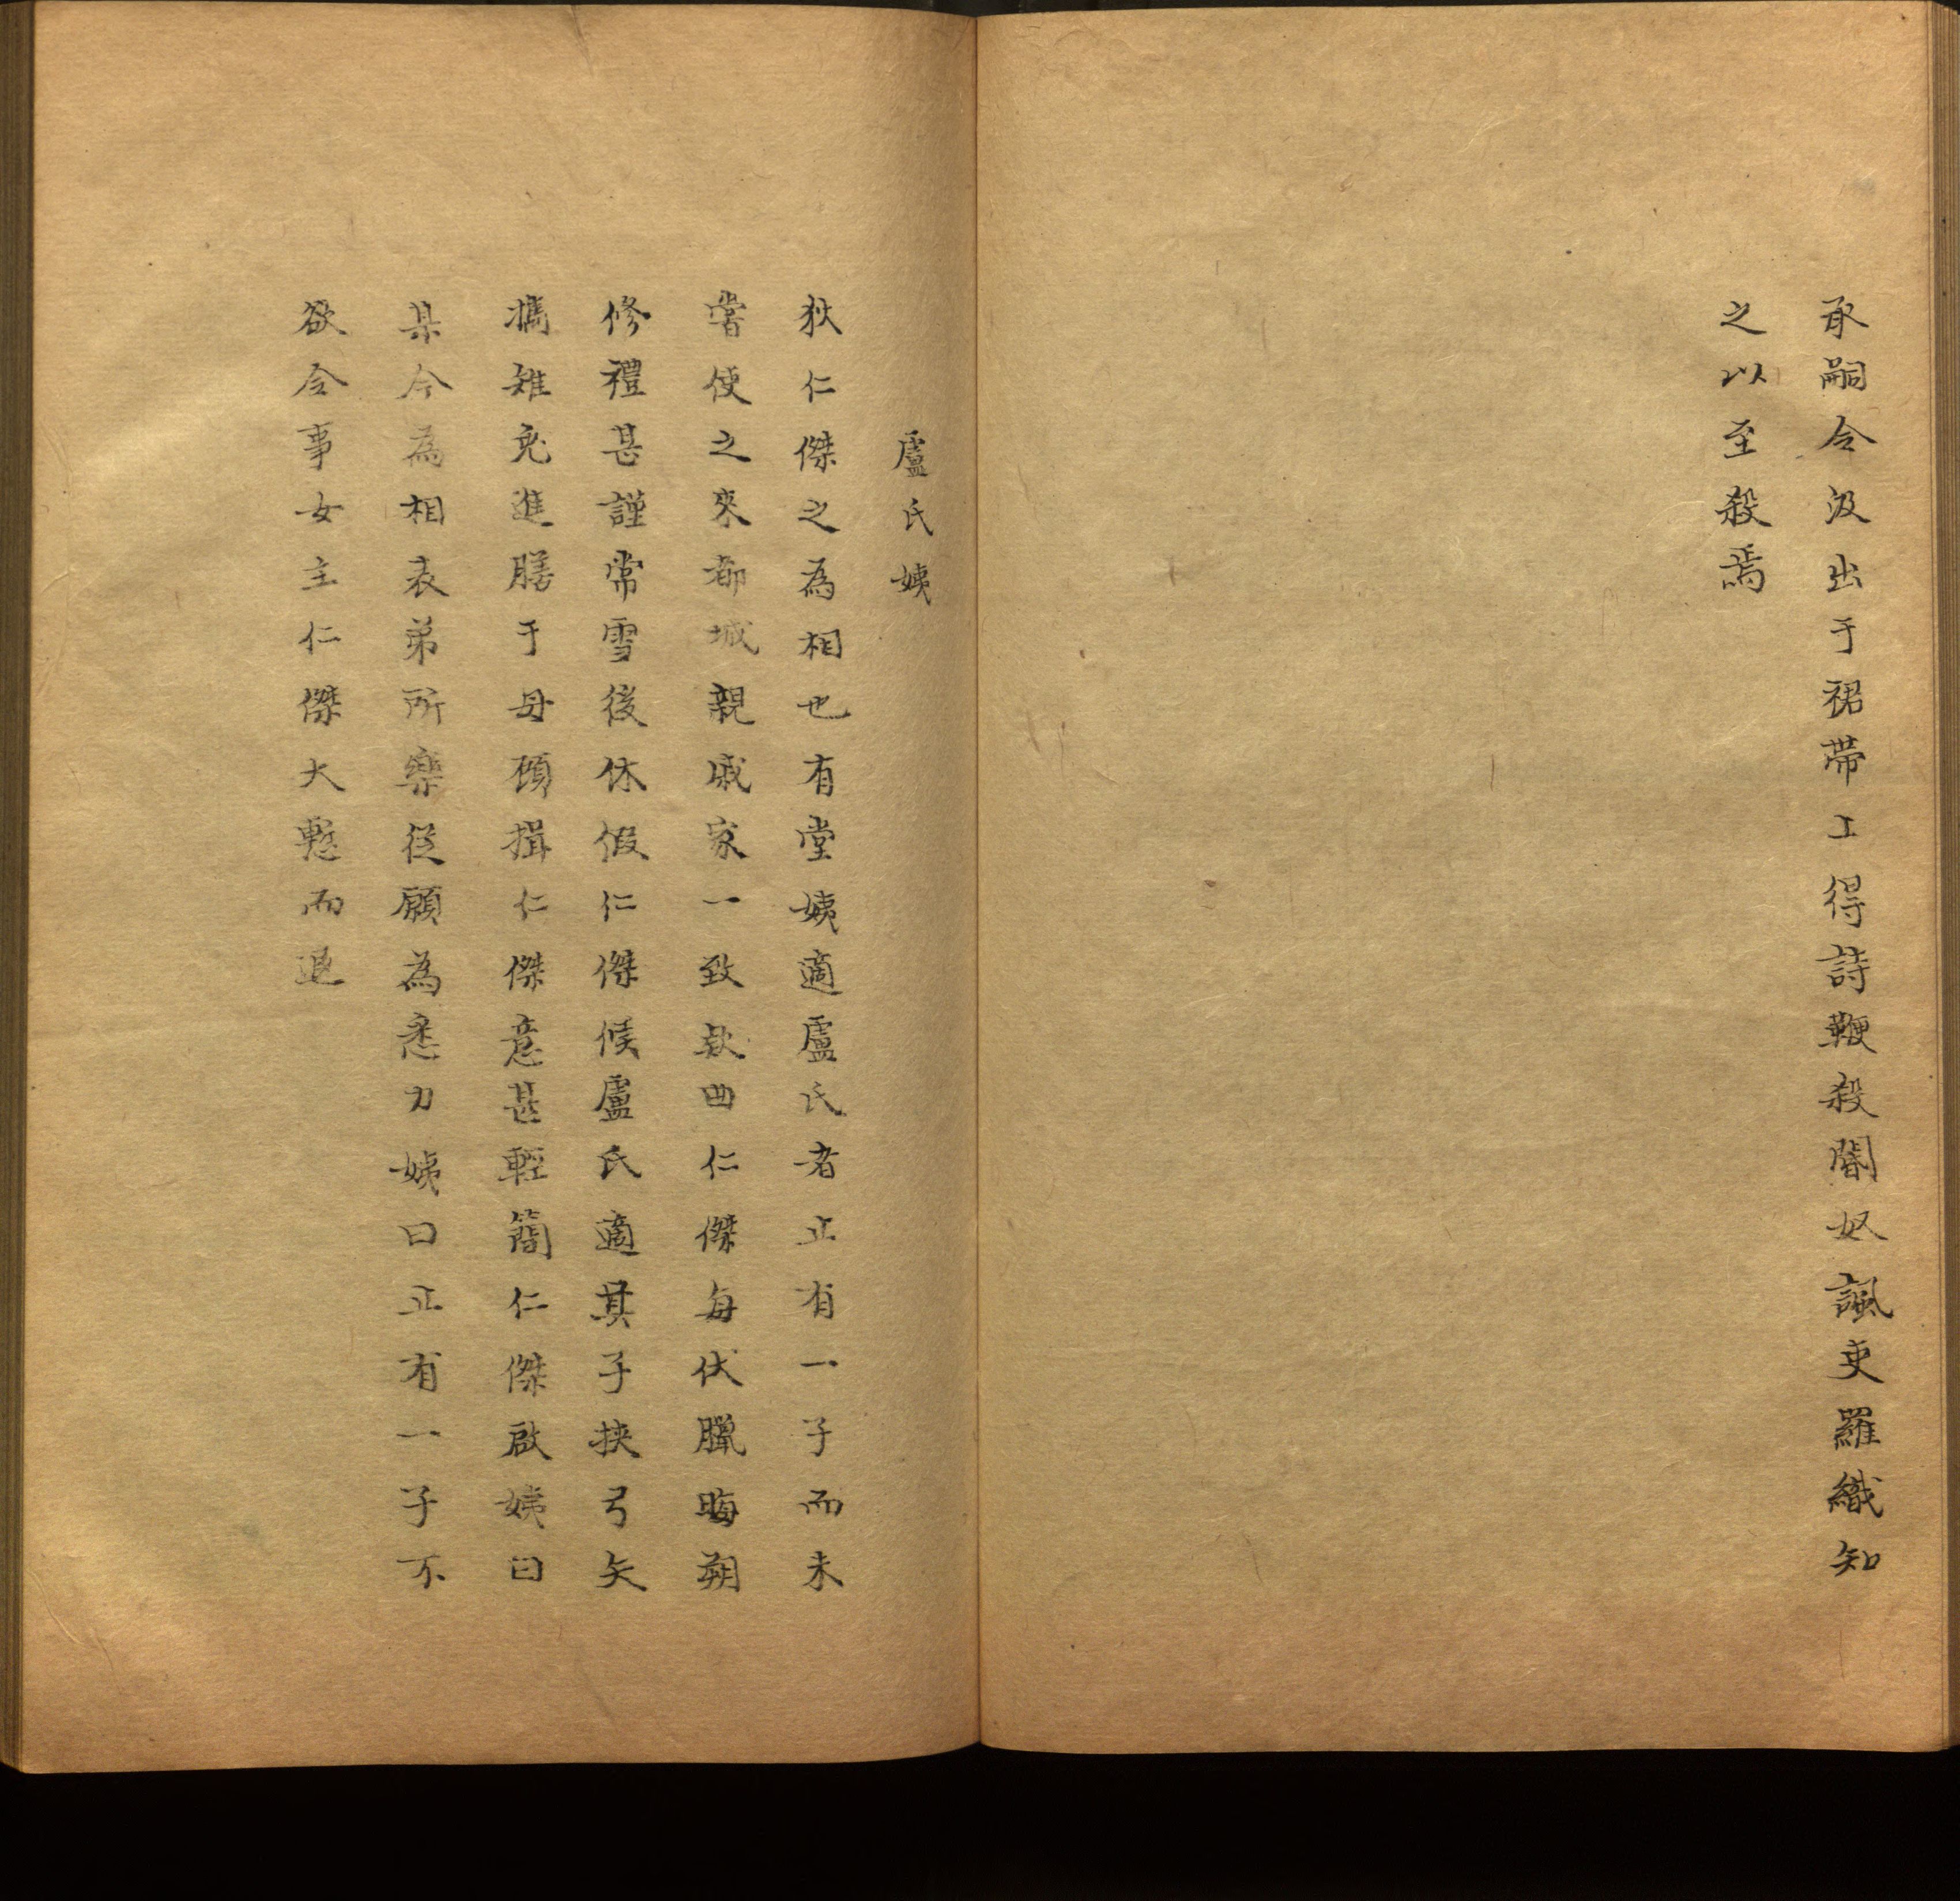 承嗣令汲出于裙帶上得詩鞭殺閽奴諷吏羅織知
之以至殺焉
盧氏姨
狄仁傑之為相也有堂姨適盧氏者止有一子而未
嘗使之來都城親戚家一致款曲仁傑每伏臘晦朔
修禮甚謹常雪後休假仁傑候盧氏適其子挾弓矢
攜雉兔進膳于母顧揖仁傑意甚輕簡仁傑啟姨曰
某今為相表弟所樂從願為悉力姨曰止有一子不
欲令事女主仁傑大慙而退